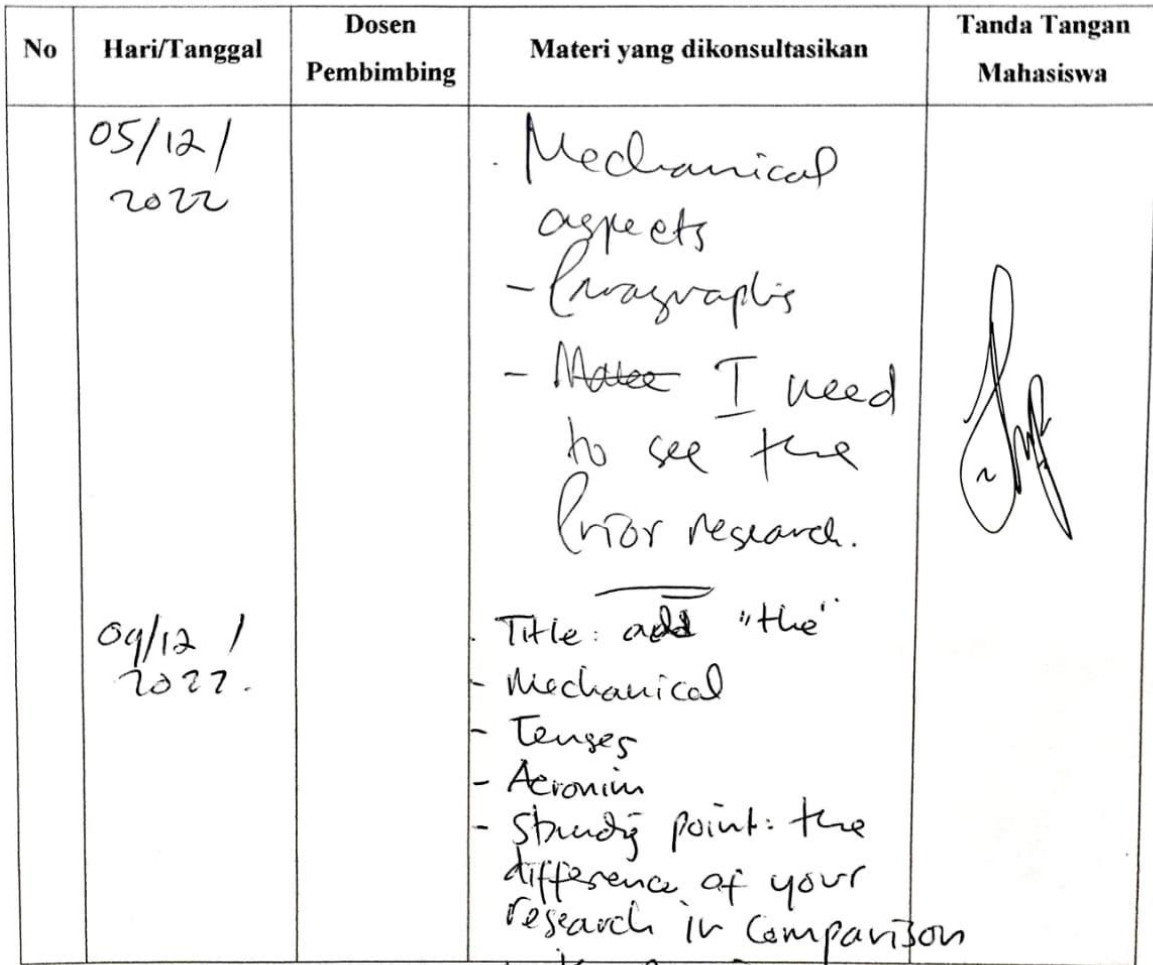 No
Hari/Tanggal
Dosen
Pembimbing
Materi yang dikonsultasikan
Tanda Tangan
Mahasiswa
05/12/
2022
. Mechanical
aspects
- Paragraphs
- I need
to see the
Prior research.
09/12 /
2022.
. Title: add "the"
- Mechanical
- Tenses
- Acronim
- point: the
difference of your
research in comparison